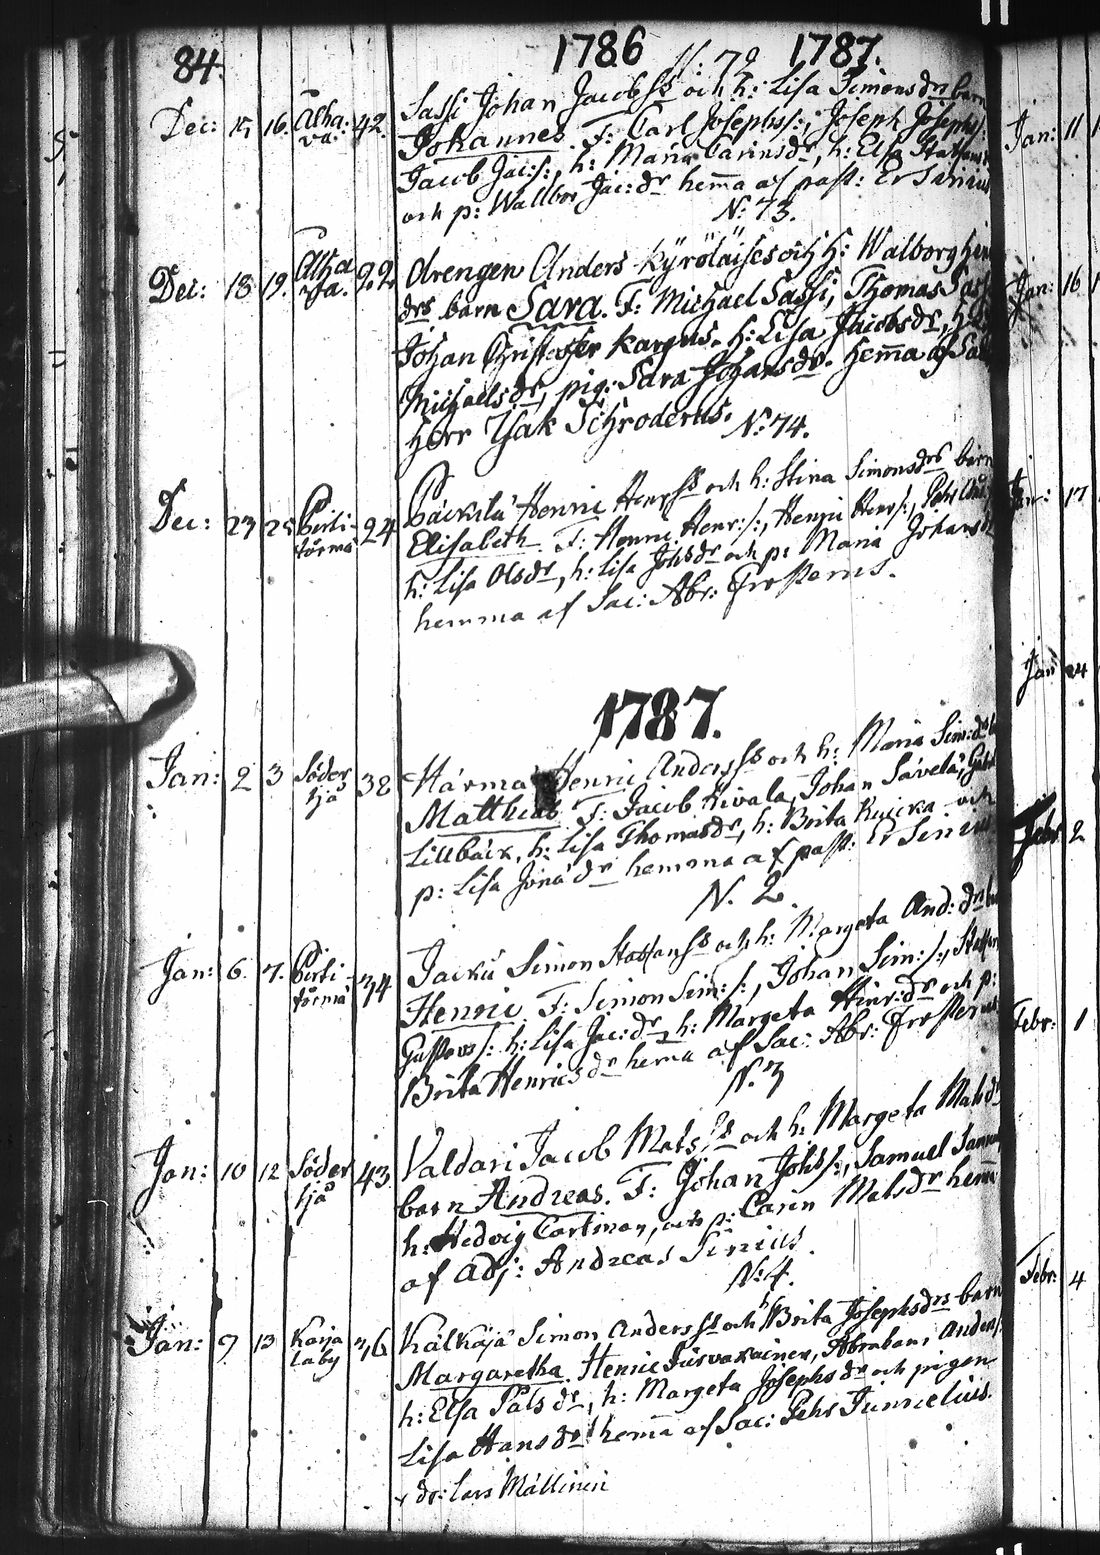 84.
1786
1787.
N: 72
Dec: 15 16. Alha- 42 Sassi Johan Jacobss och h: Lisa Simonsdrs barn
va: Johannes. F: Carl Josephss:, Joseph Josephs:
Jacob Jac:s:, h: Maria Carinsdr, h: Elsa Staffans
och p: Walbor Jac:dr hemma af past: Er Sinius
N: 73.
Dec: 18 19. Alha 22 drengen Anders Kyröläises och h: Walborg Hin
va. drs barn Sara. F: Michael Sassi, Thomas Sassi
Johan Christoffer Kargus. h: Lisa Jacobsdr, h:
Michaelsdr, pig: Sara Johansdr. hema af Sac
herr Isak Schroderus.
N: 74.
Dec: 23 25 Perti- 24 Päckilä Henric Henrss och h: Stina Simonsdrs barn
törmä Elisabeth. F: Henric Henr:s:, Henric Henrs:, Pehr
h: Lisa Olsdr, h: Lisa Johsdr och p: Maria Johansdr
hemma af Sac: Abr: Frosterus.
1787.
Jan: 2 3 Söder 38 Härmä Henric Anderss och h: Maria Sim:drs
kjå Matthias F: Jacob Kivala, Johan Sävelä,
Lillbäck, h: Lisa Thomasdr, h: Brita och
p: Lisa Jonædr hemma af past: Er Sinius
N. 2
Jan: 6. 7. Perti- 34 Jacku Simon Staffanss och h: Margeta And: drs
törmä Henric. F: Simon Sim:s:, Johan Sim:s:, Staffan
Gustavs: h: Lisa Jac:dr, h: Margeta Hinr:dr och p:
Brita Henricsdr hema af Sac: Abr: Frosterus
N. 3
Jan: 10 12 Söder 43 Valdari Jacob Matsss och h: Margeta Matsdr
kjå barn Andreas. F: Johan Johs:, Samuel
h: Hedvig Cartman, och p: Carin Matsdr hema
af Adj: Andreas Sinius.
N: 4.
Jan: 9 13 Karja 36 Kälkäjä Simon Andersss och h Brita Josephsdrs barn
laby Margaretha. Henric Abraham Anders:
h: Elsa Pålsdr, h: Margeta Josephsdr och pigan
Lisa Hansdr hema af Sac: Pehr Tunnelius.
+ dr: Lars Mällinen
Jan: 11
Jan: 16
Jan: 17
Jan 24
Febr 2
Febr: 1
Febr: 4